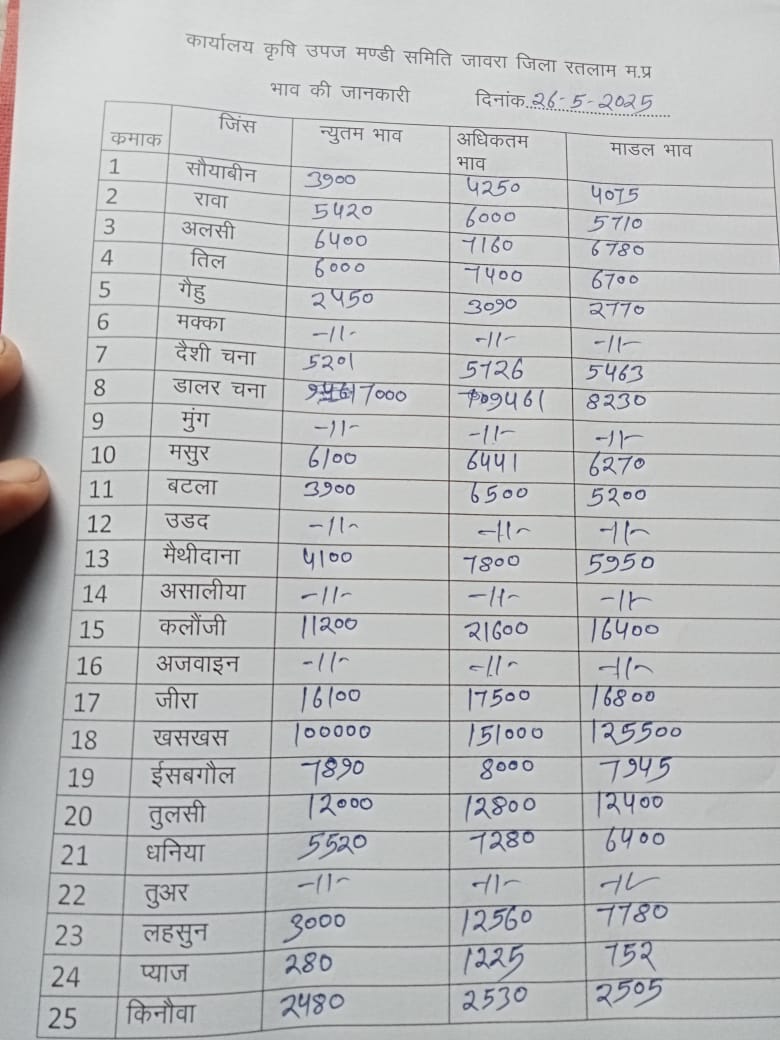 कार्यालय कृषि उपज मण्डी समिति जावरा जिला रतलाम म.प्र
भाव की जानकारी दिनांक 26-5-2025
कमाक जिंस न्युतम भाव अधिकतम भाव माडल भाव
1 सौयाबीन 3900 4250 4075
2 रावा 5420 6000 5710
3 अलसी 6400 7160 6780
4 तिल 6000 7400 6700
5 गैहु 2450 3090 2770
6 मक्का -11- -11- -11-
7 दैशी चना 5201 5726 5463
8 डालर चना 7000 9461 8230
9 मुंग -11- -11- -11-
10 मसुर 6100 6441 6270
11 बटला 3900 6500 5200
12 उडद -11- -11- -11-
13 मैथीदाना 4100 7800 5950
14 असालीया -11- -11- -11-
15 कलौंजी 11200 21600 16400
16 अजवाइन -11- -11- -11-
17 जीरा 16100 17500 16800
18 खसखस 100000 151000 125500
19 ईसबगौल 7890 8000 7945
20 तुलसी 12000 12800 12400
21 धनिया 5520 7280 6400
22 तुअर -11- -11- -11-
23 लहसुन 3000 12560 7780
24 प्याज 280 1225 752
25 किनौवा 2480 2530 2505